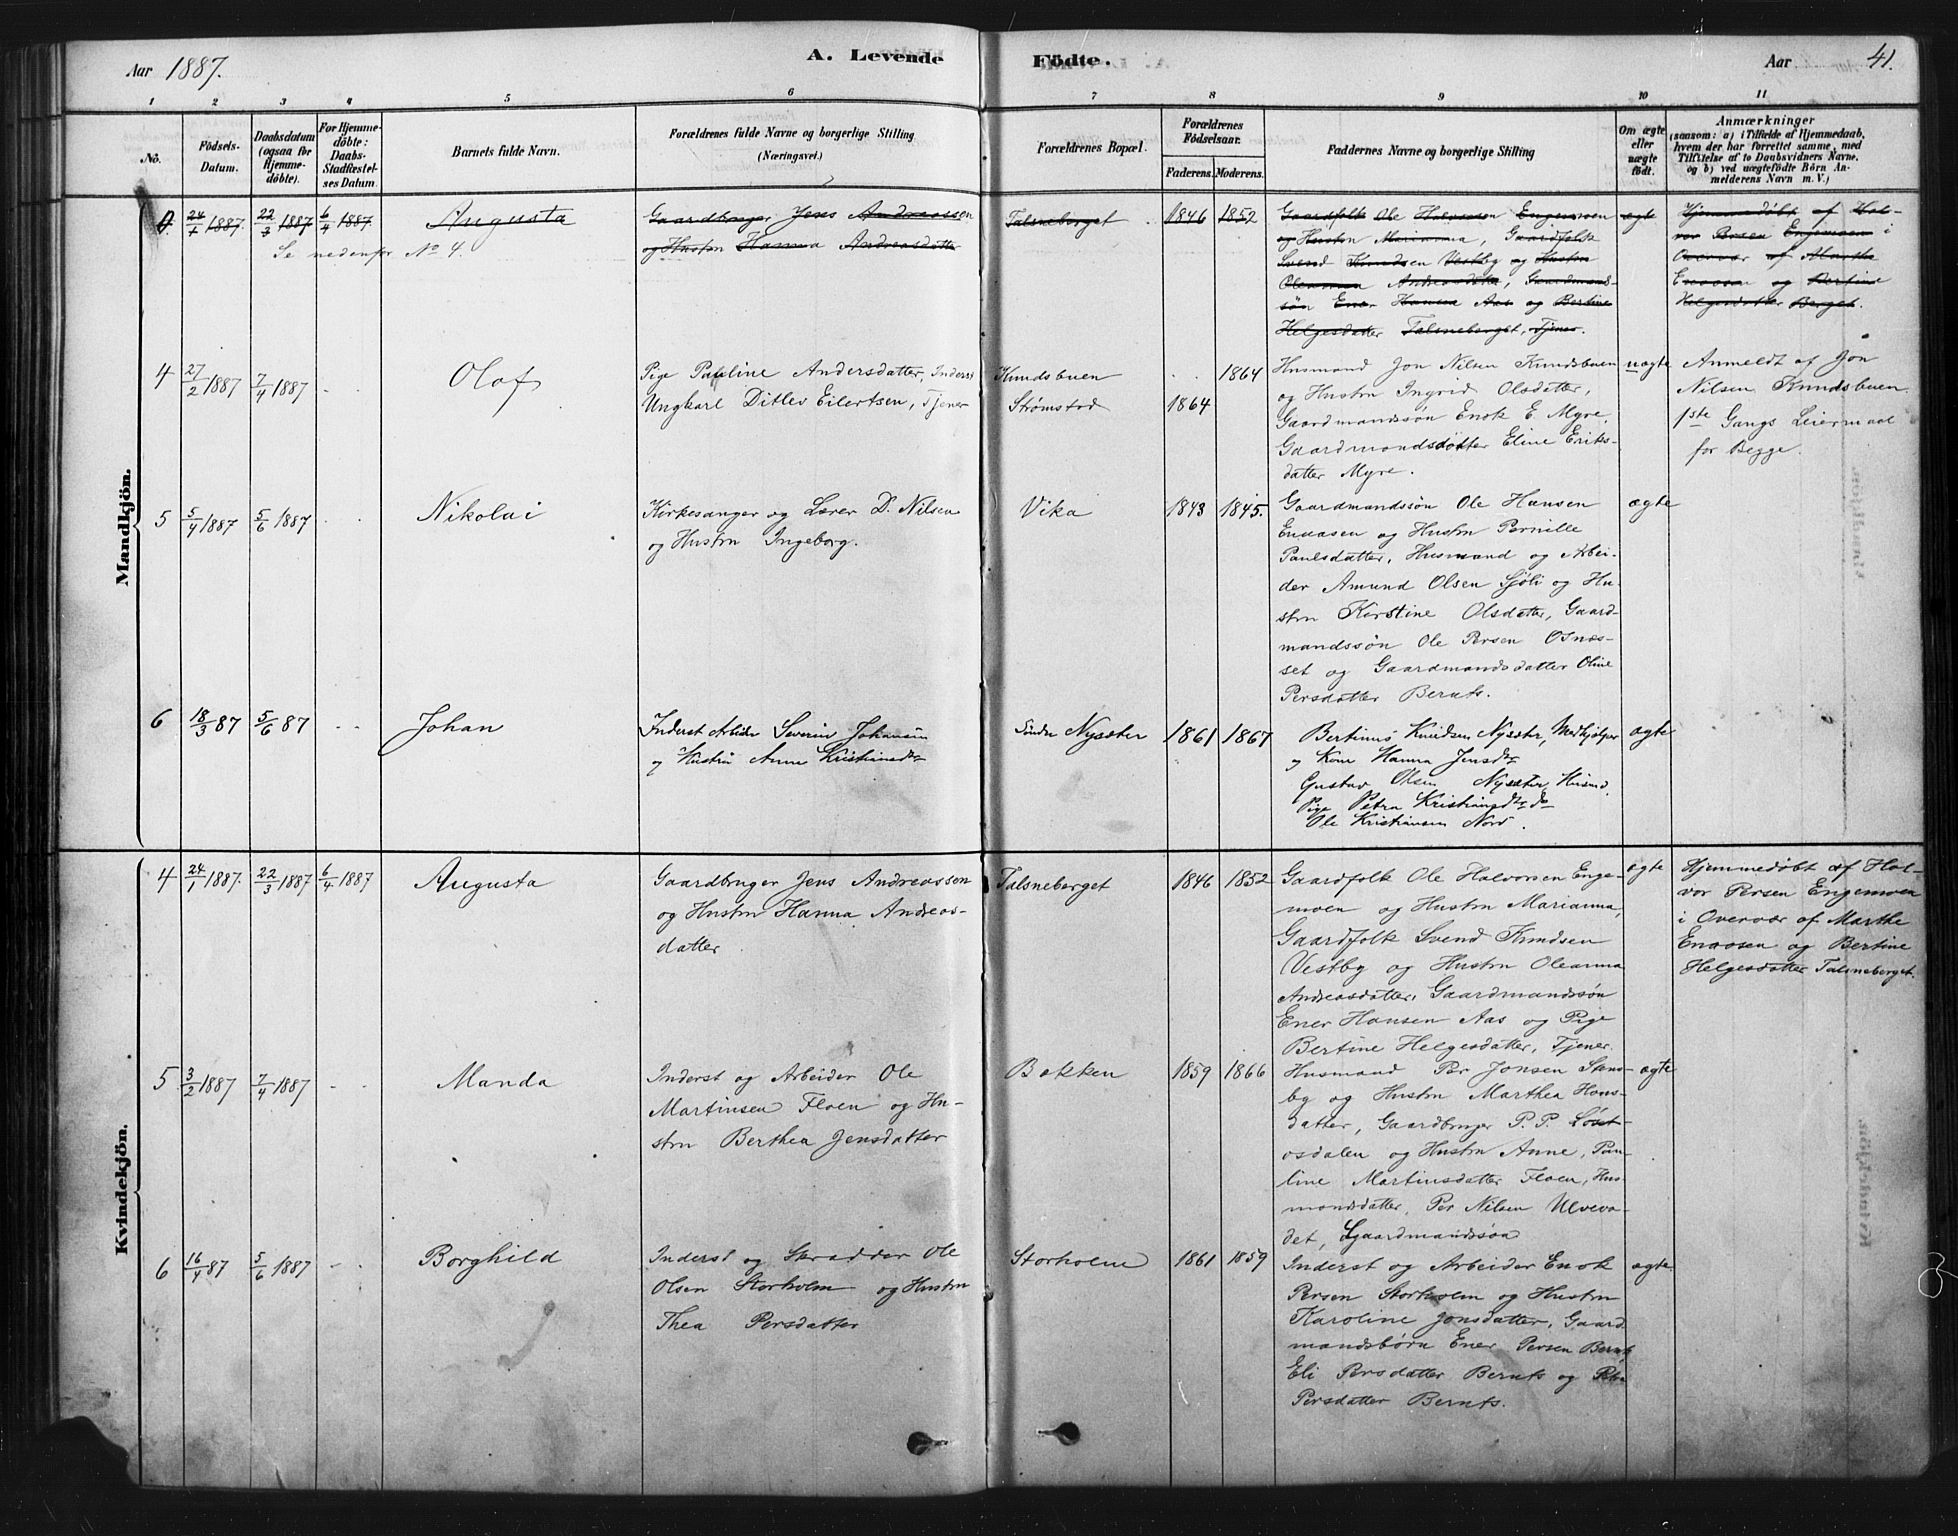 Aar 1887.
A. Levende
Födte.
Aar
41.
1 2 3 4 5 6 7 8 9 10 11
No.
Födsels-
Datum.
Daabsdatum
(ogsaa for
Hjemme-
döbte).
For Hjemme-
döbte:
Daabs-
Stadfæstel-
ses Datum.
Barnets fulde Navn.
Forældrenes fulde Navne og borgerlige Stilling
(Næringsvei.)
Forældrenes Bopæl.
Forældrenes
Födselsaar.
Faderens. Moderens.
Faddernes Navne og borgerlige Stilling
Om ægte
eller
uægte
födt.
Anmærkninger
(saasom: a) i Tilfælde af Hjemmedaab,
hvem der har forrettet samme, med
Tilföielse af to Daabsvidners Navne,
og b) ved uægtefödte Börn An-
melderens Navn m. V.)
Mandkjön.
24/1 1887. 22/3 1887 6/4 1887. Augusta
Se nedenfor No 4.
Gaardbruger Jens Andreassen
og Hustru Hanna Andreasdatter
Talsneberget 1846 1852
Gaardfolk Ole Halvorsen Engemoen
og Hustru Marianna, Gaardfolk
Svend Knudsen Vestby og Hustru
Oleanna Andreasdatter, Gaardmand-
søn Ener Hansen Aas og Bertine
Helgesdatter Talsneberget, Tjener.
ægte
Hjemmedøbt af Hal-
vor Persen Engemoen i
Overvær af Marthe
Enersen og Bertine
Helgesdatter Berget.
4 27/2 1887 7/4 1887 Olof
Pige Pauline Andersdatter, Inderst
Ungkarl Ditlev Eilertsen, Tjener
Knudsbuen 1864
Strømstad 1864
Husmand Jon Nilsen Knudsbuen
og Hustru Ingrid Olsdatter,
Gaardmandssøn Enok E. Myre,
Gaardmandsdatter Eline Eriks-
datter Myre.
uægte
Anmeldt af Jon
Nilsen Knudsbuen.
1ste Gangs Leiermaal
for Begge.
5 5/4 1887 5/6 1887 Nikolai
Kirkesanger og Lærer D. Nilsen
og Hustru Ingeborg.
Vika 1843 1845.
Gaardmandssøn Ole Hansen
Enaasen og Hustru Pernille
Paulsdatter, Husmand og Arbei-
der Amund Olsen Sjøli og Hu-
stru Kirstine Olsdatter, Gaard-
mandssøn Ole Persen Osnes-
set og Gaardmandsdatter Oline
Persdatter Bernts.
ægte
6 18/3 87 5/6 87 Johan
Inderst Arbeider Severin Johansen
og Hustru Anne Kristiansdtr
Søndre Nysæter 1861 1867
Bertinus Knudsen Nysæter, Medhjælper
og Kone Hanna Jensdtr
Gustav Olsen Nysæter, Husmd,
Pige Petra Kristiansdtr do
Ole Kristiansen Nord.
ægte
Kvindekjön.
4 24/1 1887. 22/3 1887 6/4 1887 Augusta
Gaardbruger Jens Andreassen
og Hustru Hanna Andreas-
datter
Talsneberget 1846 1852
Gaardfolk Ole Halvorsen Enge-
moen og Hustru Marianna,
Gaardfolk Svend Knudsen
Vestby og Hustru Oleanna
Andreasdatter, Gaardmandssøn
Ener Hansen Aas og Pige
Bertine Helgesdatter, Tjener.
ægte
Hjemmedøbt af Hal-
vor Persen Engemoen
i Overvær af Marthe
Enersen og Bertine
Helgesdatter Talsneberget.
5 3/2 1887 7/4 1887 Manda
Inderst og Arbeider Ole
Martinsen Floen og Hu-
stru Berthea Jensdatter
Bakken 1859 1866
Husmand Per Jonsen Sten-
by og Hustru Marthea Hans-
datter, Gaardbruger P. P. Løset-
osdalen og Hustru Anne, Pau-
line Martinsdatter Floen, Hus-
mandsdatter, Per Nilsen Ulveva-
det, Gaardmandssøn
ægte
6 16/4 87 5/6 1887 Borghild
Inderst og Skrædder Ole
Olsen Storholm og Hustru
Thea Persdatter
Storholm 1861 1859
Inderst og Arbeider Enok
Persen Storholm og Hustru
Karoline Jonsdatter, Gaard-
mandsbørn Ener Persen Bernts,
Eli Persdatter Bernts og
Persdatter Bernts.
ægte.